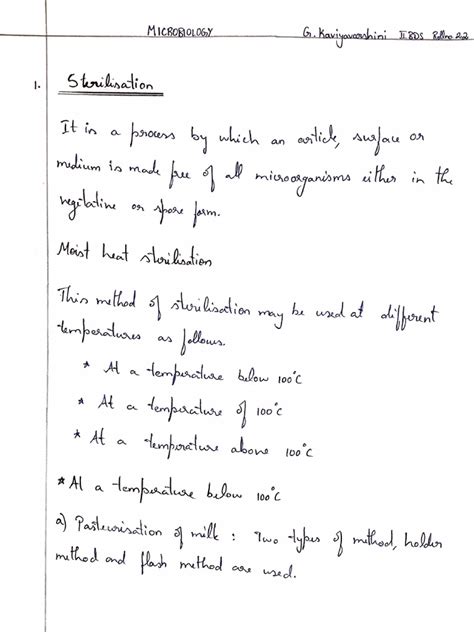 MICROBIOLOGY G. Kaviyavarshini II BDS Roll no 22
1. Sterilisation
It is a process by which an article, surface or
medium is made free of all microorganisms either in the
vegitative or spore form.
Moist heat sterilisation
This method of sterilisation may be used at different
temperatures as follows.
* At a temperature below 100°C
* At a temperature of 100°C
* At a temperature above 100°C
* At a temperature below 100°C
a) Pasteurisation of milk : Two types of method, holder
method and flash method are used.